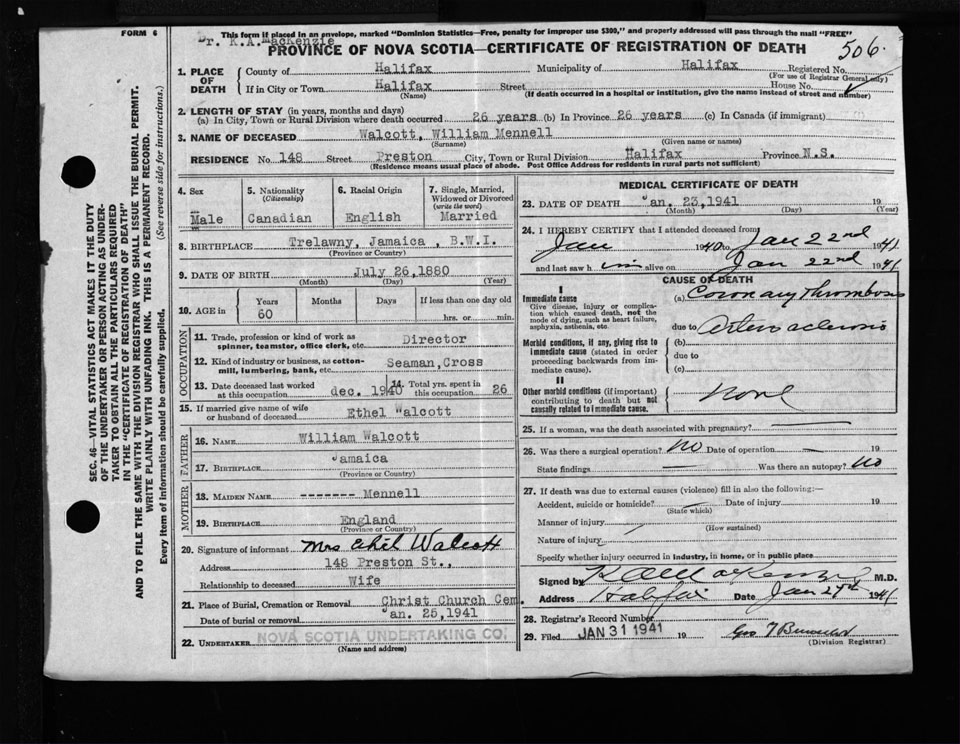 FORM 6
This form if placed in an envelope, marked "Dominion Statistics—Free, penalty for improper use $300," and properly addressed will pass through the mail "FREE"
Dr. K.A.MacKenzie
PROVINCE OF NOVA SCOTIA—CERTIFICATE OF REGISTRATION OF DEATH
506
SEC. 46—VITAL STATISTICS ACT MAKES IT THE DUTY
OF THE UNDERTAKER OR PERSON ACTING AS UNDER-
TAKER TO OBTAIN ALL THE PARTICULARS REQUIRED
IN THE "CERTIFICATE OF REGISTRATION OF DEATH"
AND TO FILE THE SAME WITH THE DIVISION REGISTRAR WHO SHALL ISSUE THE BURIAL PERMIT.
WRITE PLAINLY WITH UNFADING INK. THIS IS A PERMANENT RECORD.
Every item of information should be carefully supplied. (See reverse side for instructions.)
1. PLACE OF DEATH
County of Halifax Municipality of Halifax Registered No.
(For use of Registrar General only)
If in City or Town Halifax Street House No.
(Name) (If death occurred in a hospital or institution, give the name instead of street and number)
2. LENGTH OF STAY (in years, months and days)
(a) In City, Town or Rural Division where death occurred 26 years (b) In Province 26 years (c) In Canada (if immigrant)
3. NAME OF DECEASED Walcott, William Mennell
(Surname) (Given name or names)
RESIDENCE No. 148 Street Preston City, Town or Rural Division Halifax Province N.S.
(Residence means usual place of abode. Post Office Address for residents in rural parts not sufficient)
4. Sex Male
5. Nationality (Citizenship) Canadian
6. Racial Origin English
7. Single, Married, Widowed or Divorced (write the word) Married
8. BIRTHPLACE Trelawny, Jamaica, B.W.I.
(Province or Country)
9. DATE OF BIRTH July 26,1880
(Month) (Day) (Year)
10. AGE in Years 60 Months Days If less than one day old hrs. or min.
OCCUPATION
11. Trade, profession or kind of work as spinner, teamster, office clerk, etc. Director
12. Kind of industry or business, as cotton-mill, lumbering, bank, etc. Seaman,Cross
13. Date deceased last worked at this occupation dec. 1940
14. Total yrs. spent in this occupation 26
15. If married give name of wife or husband of deceased Ethel Walcott
FATHER
16. NAME William Walcott
17. BIRTHPLACE Jamaica
(Province or Country)
MOTHER
18. MAIDEN NAME ------- Mennell
19. BIRTHPLACE England
(Province or Country)
20. Signature of informant Mrs Ethel Walcott
Address 148 Preston St.,
Relationship to deceased Wife
21. Place of Burial, Cremation or Removal Christ Church Cem.
Date of burial or removal Jan. 25,1941
22. UNDERTAKER NOVA SCOTIA UNDERTAKING CO.
(Name and address)
MEDICAL CERTIFICATE OF DEATH
23. DATE OF DEATH Jan. 23,1941 19
(Month) (Day) (Year)
24. I HEREBY CERTIFY that I attended deceased from
Jan 1940 to Jan 22nd 1941
and last saw him alive on Jan 22nd 1941
CAUSE OF DEATH
I
Immediate cause
Give disease, injury or complication which caused death, not the mode of dying, such as heart failure, asphyxia, asthenia, etc.
(a) Coronary Thrombosis
due to Arterio sclerosis
Morbid conditions, if any, giving rise to immediate cause (stated in order proceeding backwards from immediate cause).
(b)
due to
(c)
II
Other morbid conditions (if important) contributing to death but not causally related to immediate cause.
None
25. If a woman, was the death associated with pregnancy?
26. Was there a surgical operation? No Date of operation 19
State findings Was there an autopsy? No
27. If death was due to external causes (violence) fill in also the following:—
Accident, suicide or homicide? Date of injury 19
(State which)
Manner of injury
(How sustained)
Nature of injury
Specify whether injury occurred in industry, in home, or in public place
Signed by K A MacKenzie M.D.
Address Halifax Date Jan 29th 1941
28. Registrar's Record Number
29. Filed JAN 31 1941 19
(Division Registrar)